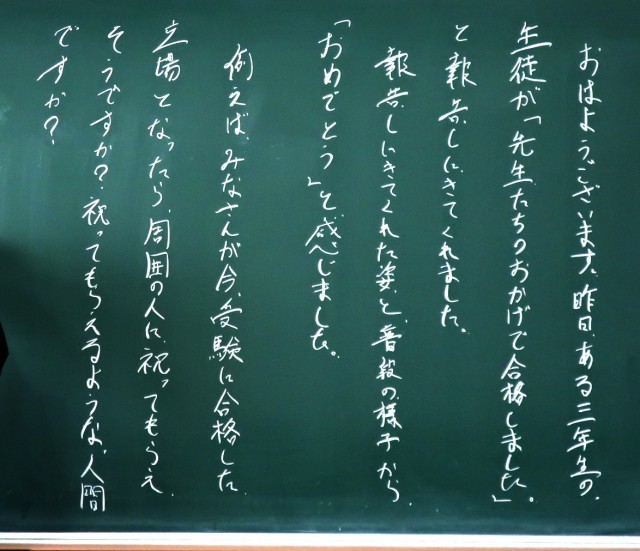 おはようございます。昨日、ある三年生の、
生徒が「先生たちのおかげで合格しました」。
と報告しにきてくれました。
報告しにきてくれた姿と、普段の様子から、
「おめでとう」と、感じました。
例えば、みなさんが今、受験に合格した、
立場となったら、周囲の人に、祝ってもらえ、
そうですか？祝ってもらえるような、人間
ですか？